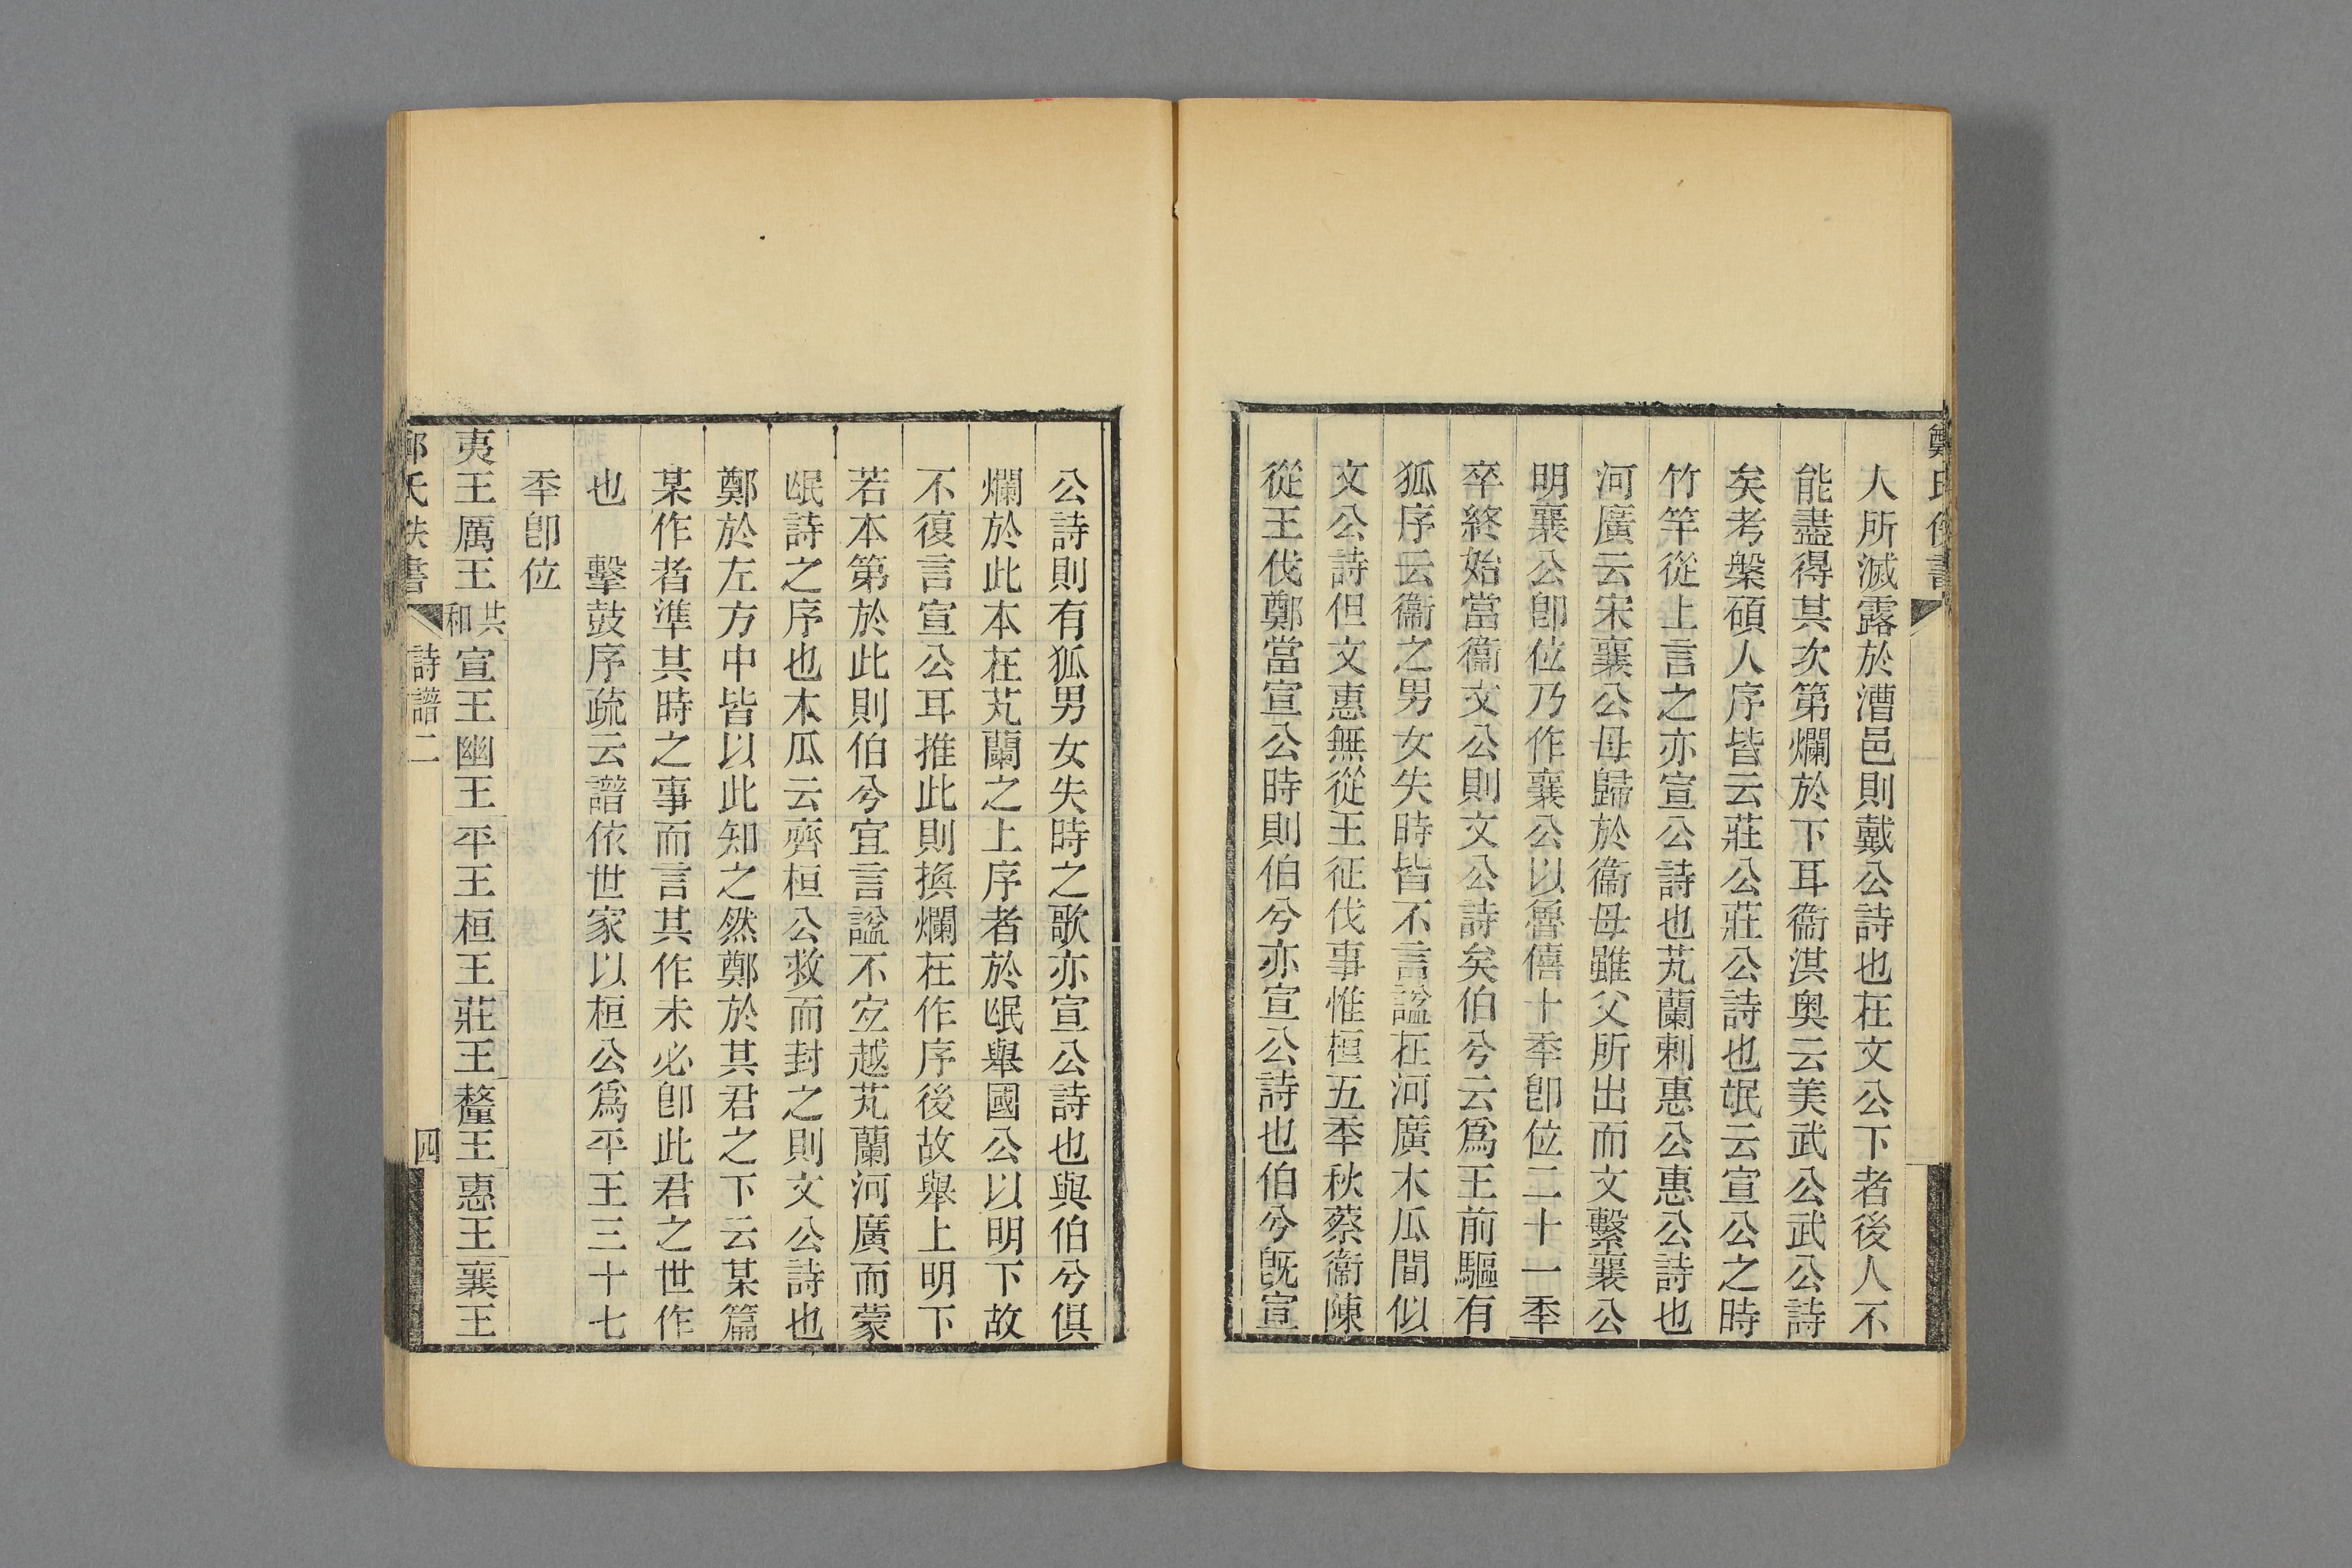 鄭氏佚書
人所滅露於漕邑則戴公詩也在文公下者後人不
能盡得其次第爛於下耳衞淇奧云美武公武公詩
矣考槃碩人序皆云莊公莊公詩也氓云宣公之時
竹竿從上言之亦宣公詩也芄蘭刺惠公惠公詩也
河廣云宋襄公母歸於衞母雖父所出而文繫襄公
明襄公卽位乃作襄公以魯僖十秊卽位二十一秊
卒終始當衞文公則文公詩矣伯兮云爲王前驅有
狐序云衞之男女失時皆不言諡在河廣木瓜間似
文公詩但文惠無從王征伐事惟桓五秊秋蔡衞陳
從王伐鄭當宣公時則伯兮亦宣公詩也伯兮旣宣
公詩則有狐男女失時之歌亦宣公詩也與伯兮俱
爛於此本在芄蘭之上序者於氓舉國公以明下故
不復言宣公耳推此則換爛在作序後故舉上明下
若本第於此則伯兮宜言諡不宐越芄蘭河廣而蒙
氓詩之序也木瓜云齊桓公救而封之則文公詩也
鄭於左方中皆以此知之然鄭於其君之下云某篇
某作者準其時之事而言其作未必卽此君之世作
也　擊鼓序疏云譜依世家以桓公爲平王三十七
秊卽位
夷王厲王共和宣王幽王平王桓王莊王釐王惠王襄王
鄭氏佚書　詩譜二　四